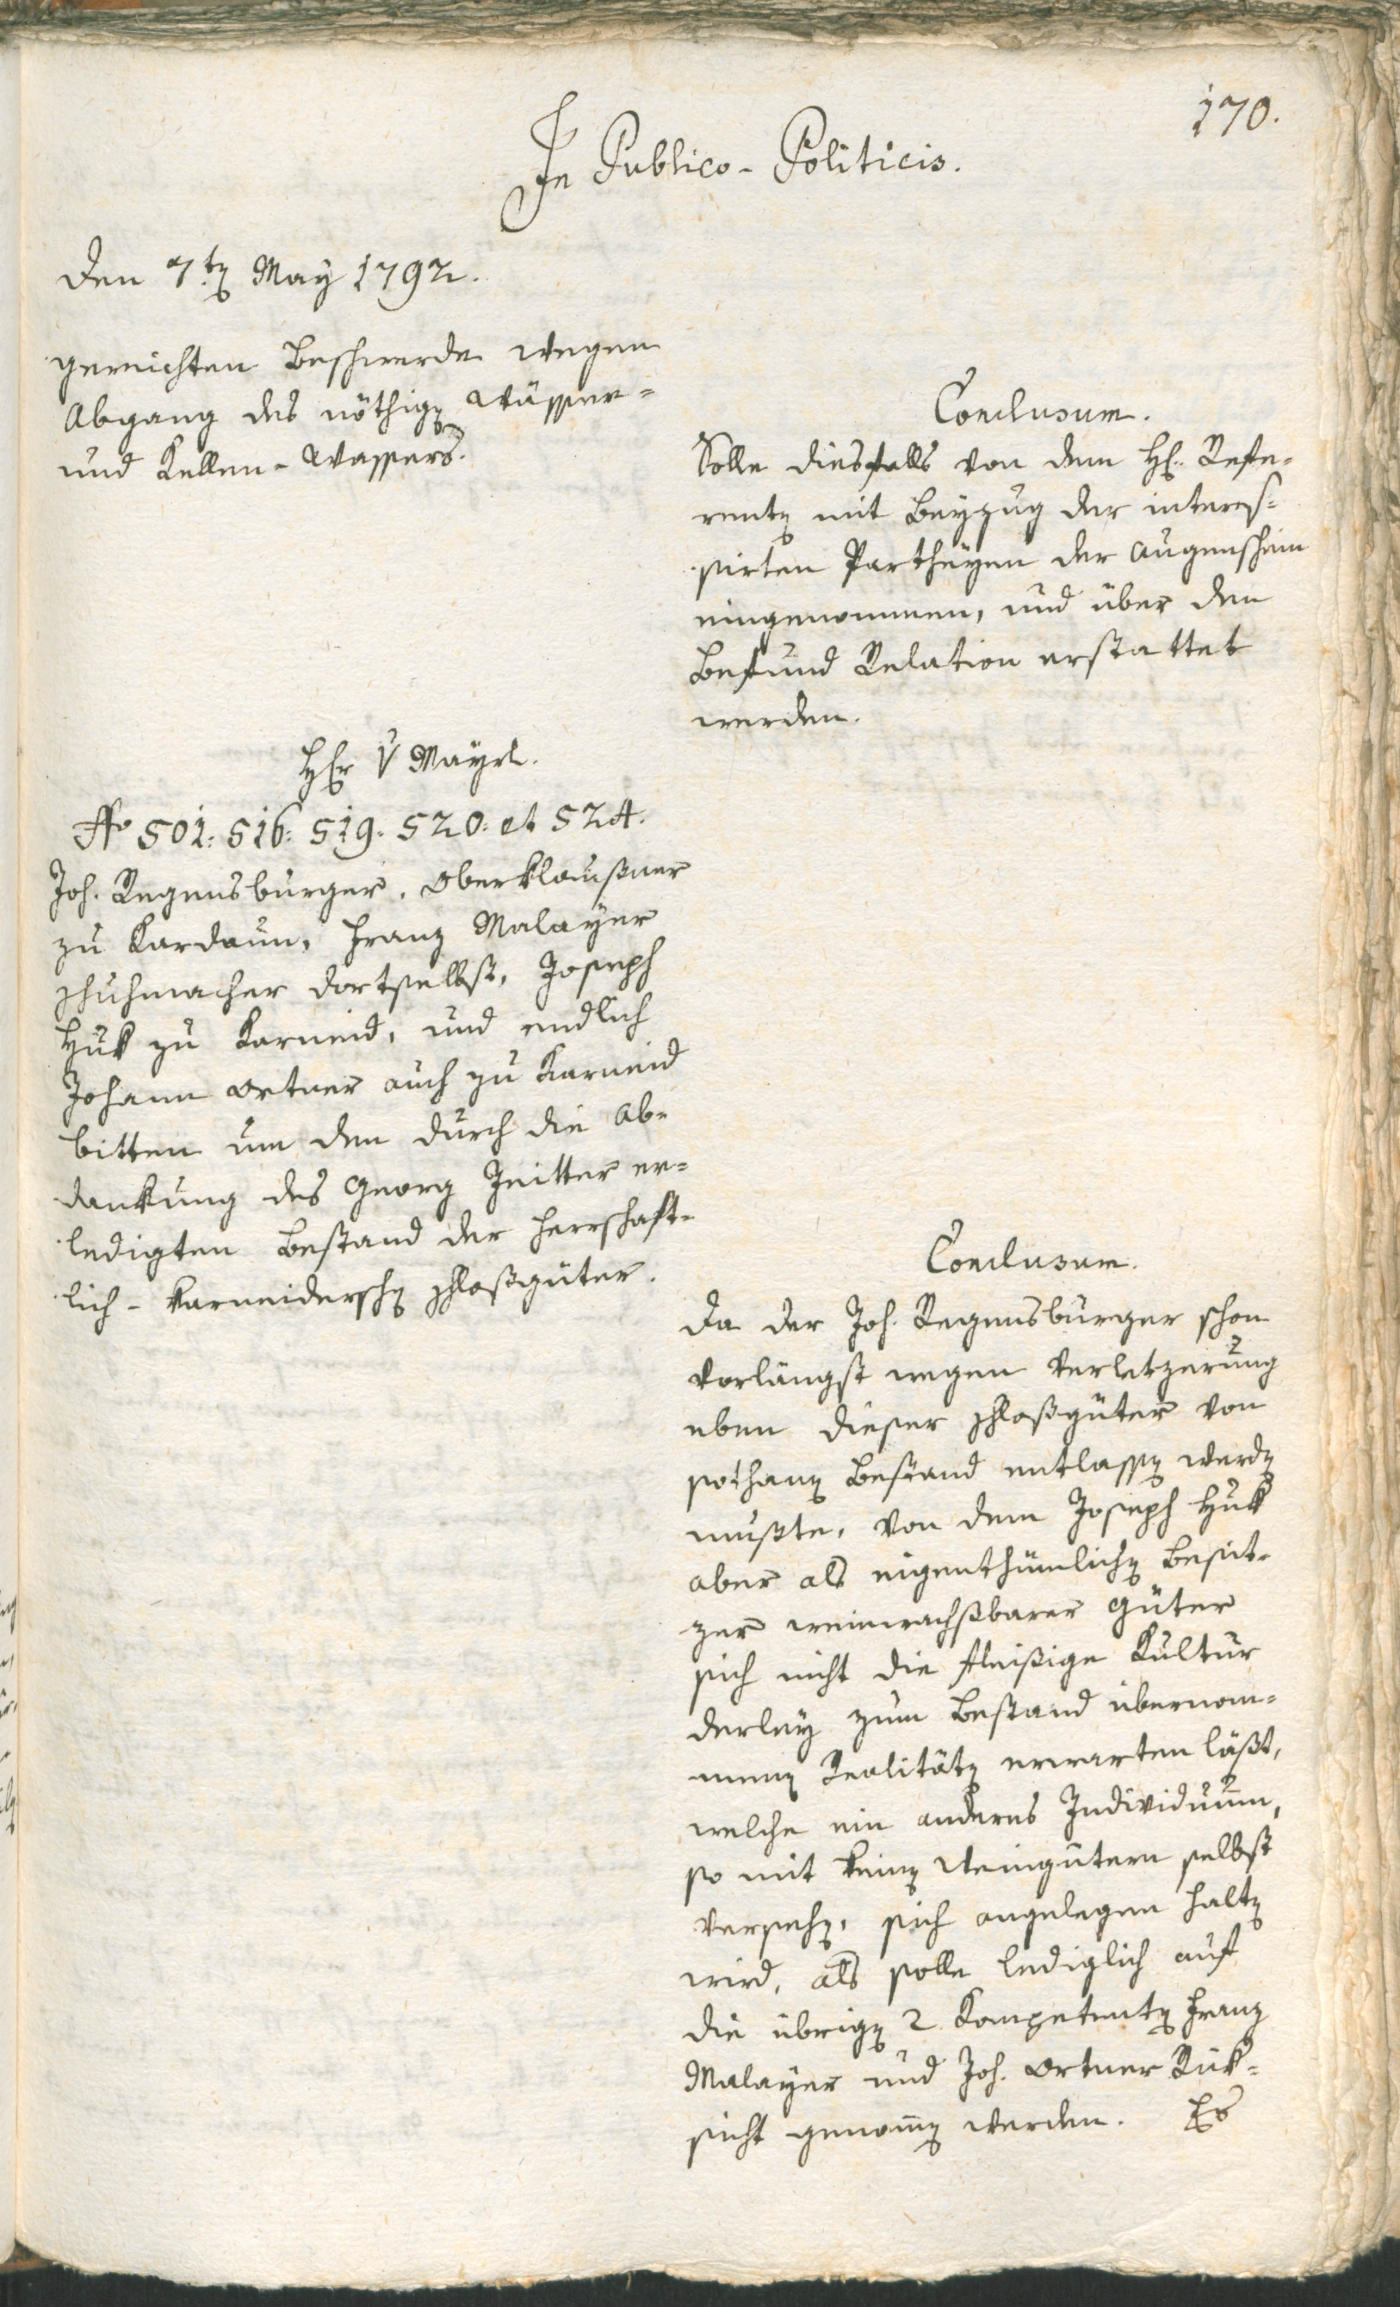 170.
In Publico-Politicis.
Den 7.ten May 1792.
gereichten Beschwerde wegen
Abgang des nöthigen Wässer-
und Kellen-Wassers.
Conclusum.
Solle diesfalls von dem H. Refe-
renten mit Beyzug der interes-
sirten Partheyen der Augenschein
eingenommen, und über den
Befund Relation erstattet
werden.
Hr V Mayrl.
No 501: 516: 519: 520: et 524.
Joh. Regensburger, Oberklaußner
zu Kardaun, Franz Malayer
Schuhmacher dortselbst, Joseph
Huk zu Karneid, und endlich
Johann Ortner auch zu Karneid
bitten um den durch die Ab-
dankung des Georg Zeitter er-
ledigten Bestand der herrschaft-
lich-karneiderschen Schloßgüter.
Conclusum.
Da der Joh. Regensburger schon
vorlängst wegen Verletzerung
eben dieser Schloßgüter von
sothanen Bestand entlassen werden
mußte, von dem Joseph Huk
aber als eigenthümlichen Besit-
zer weinwachsbarer Güter
sich nicht die fleißige Kultur
derley zum Bestand übernom-
menen Realitäten erwarten läßt,
welche ein anderes Individuum,
so mit keinen Weingütern selbst
versehen, sich angelegen halten
wird, als solle lediglich auf
die übrigen 2 Kompetenten Franz
Malayer und Joh. Ortner Rük-
sicht genommen werden. Es